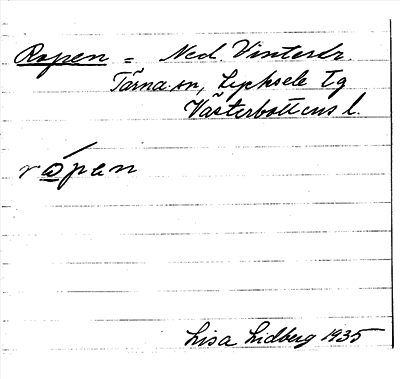 Ropen = Ned. Vinterdr.
Tärna sn, Lycksele tg
Västerbottens l.
råpen
Lisa Lidberg 1935